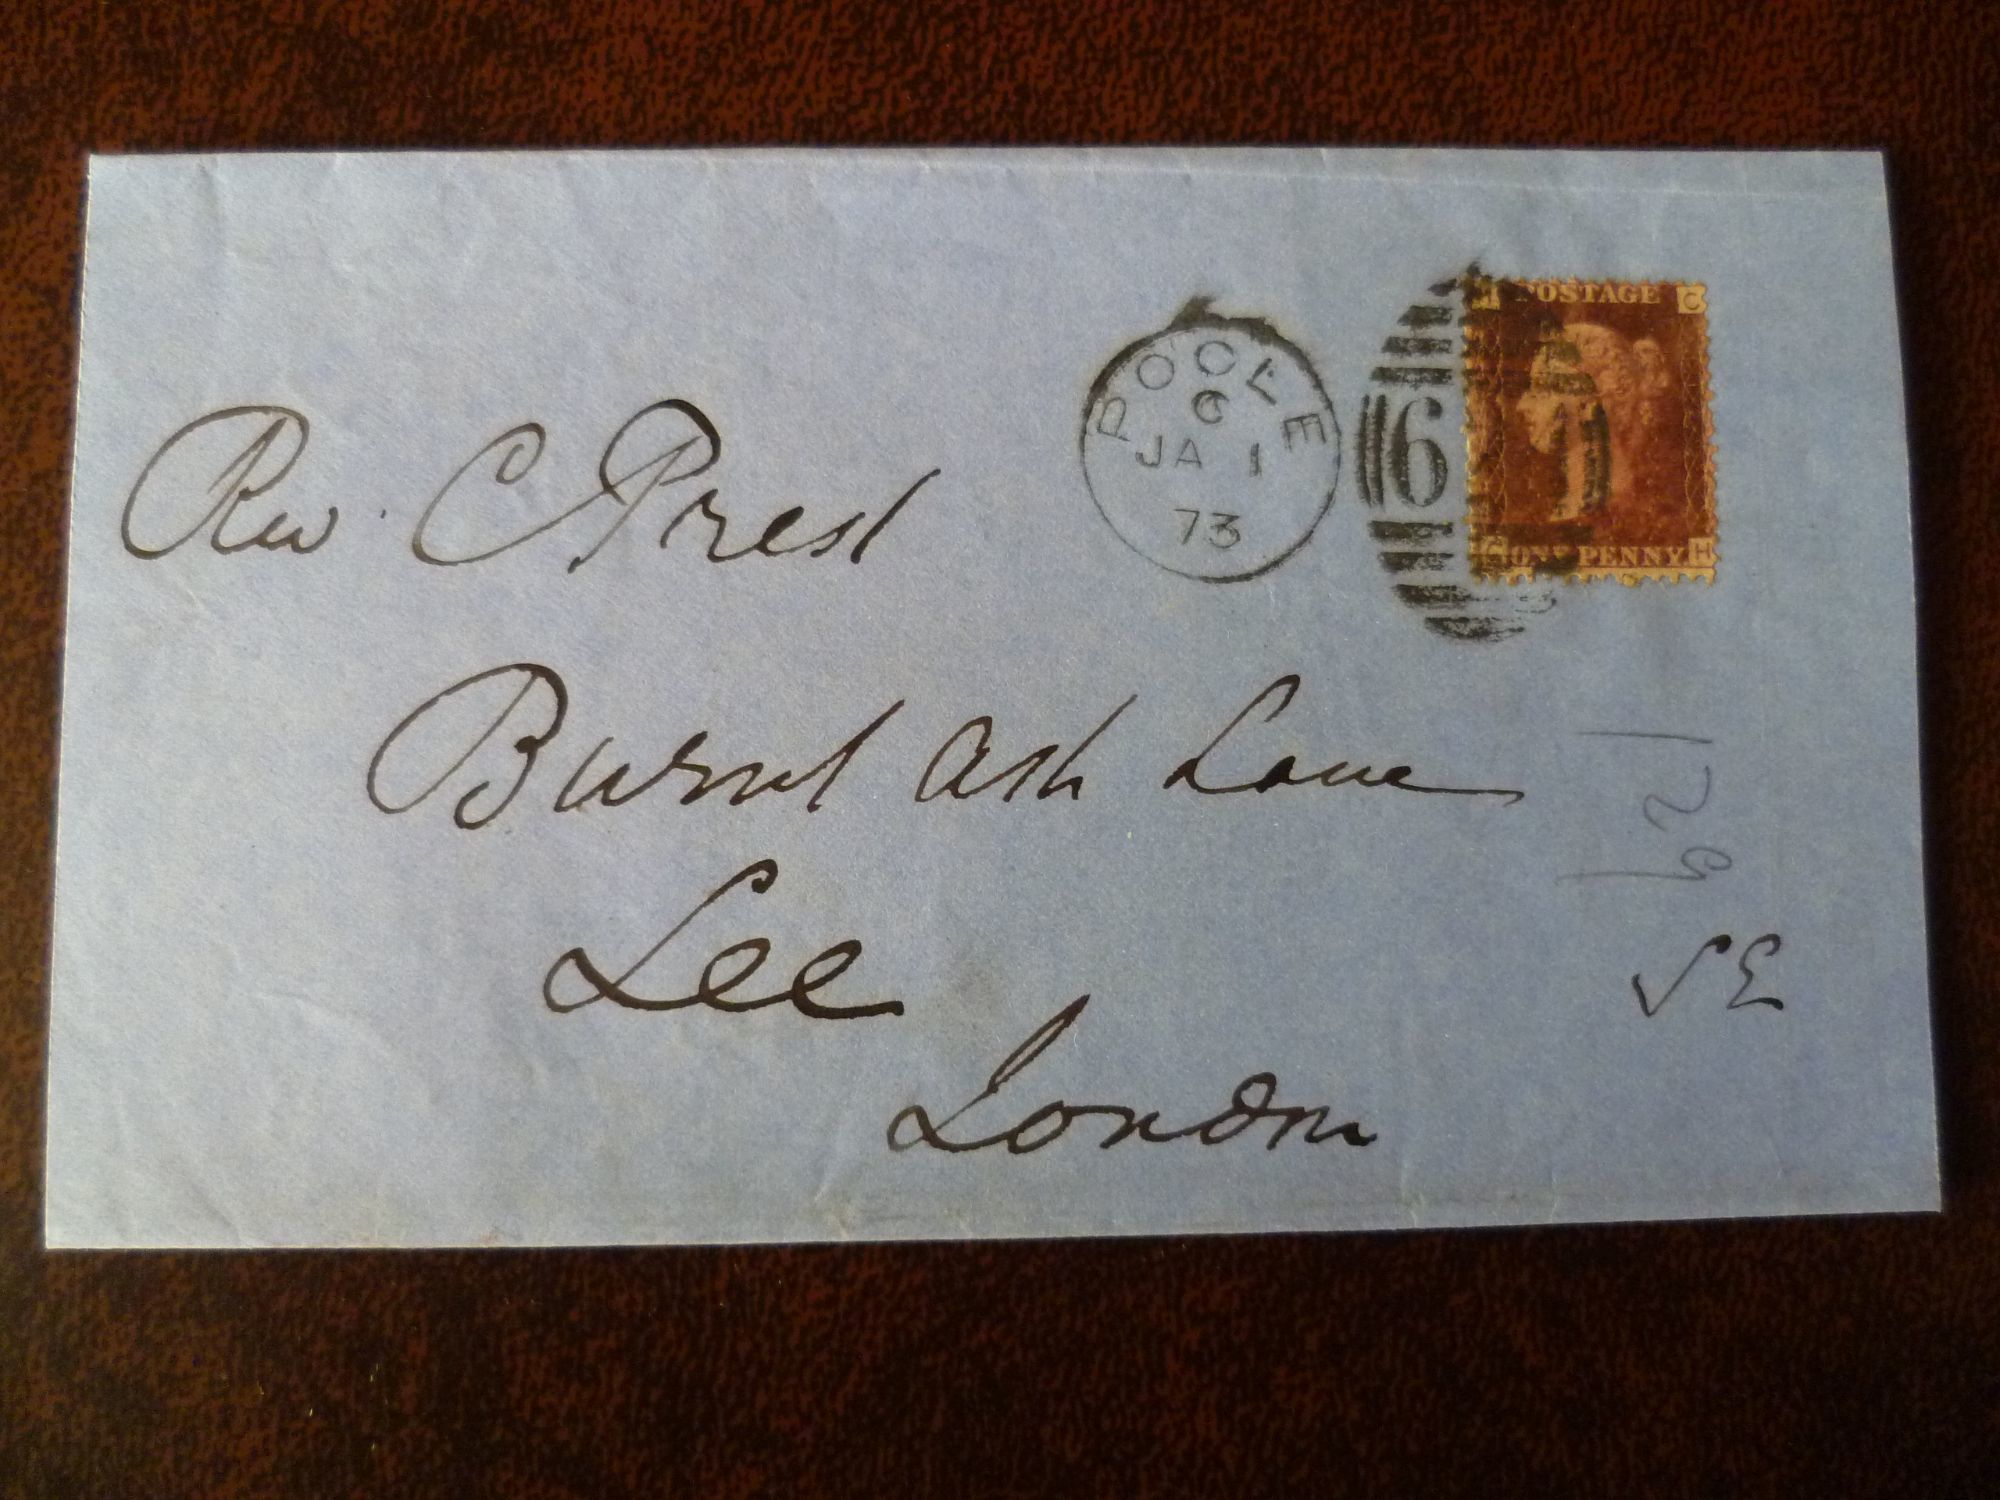 POOLE
6
JA 1
73
6 1
H C
POSTAGE
C H
ONE PENNY
Rev. C Prest
Burnt Ash Lane
Lee
London
SE
129